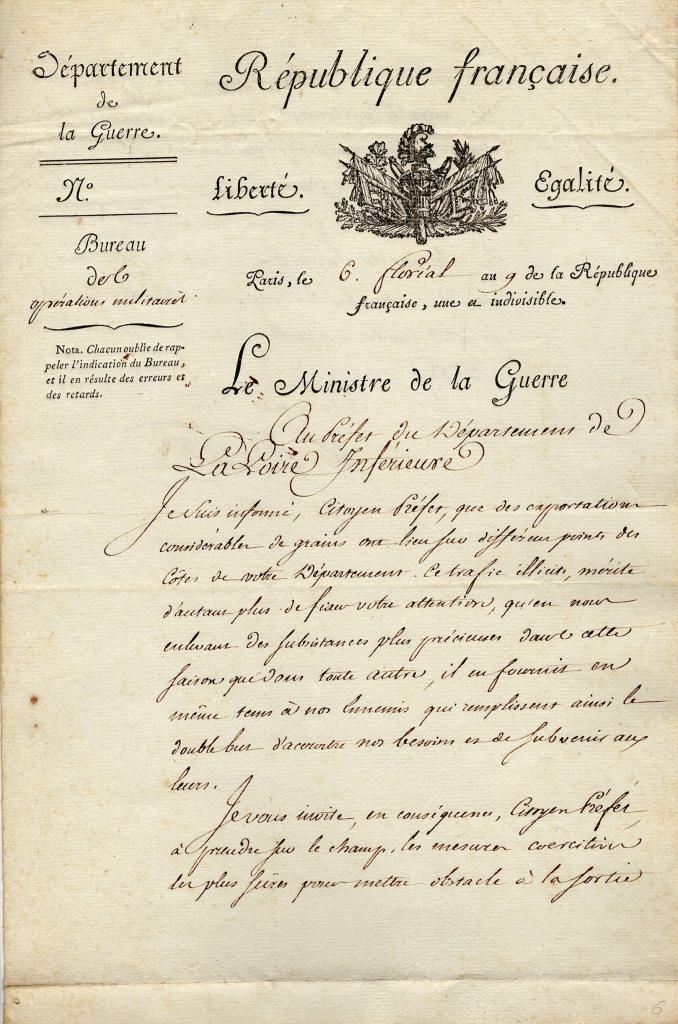 Département
de
la Guerre.
N.º
Bureau
des
opérations militaires
Nota. Chacun oublie de rap-
peler l'indication du Bureau,
et il en résulte des erreurs et
des retards.
République française.
Liberté. Egalité.
Paris, le 6. floréal an 9 de la République
française, une et indivisible.
Le Ministre de la Guerre
Au Préfet du Département de
La Loire Inférieure
Je suis informé, Citoyen Préfet, que des exportations
considérables de grains ont lieu sur différens points des
Côtes de votre Département. Ce trafic illicite, mérite
d'autant plus de fixer votre attention, qu'en nous
enlevant des subsistances plus précieuses dans cette
saison que dans toute autre, il en fournit en
même tems à nos Ennemis qui remplissent ainsi le
double but d'accroitre nos besoins et de subvenir aux
leurs.
Je vous invite, en conséquence, Citoyen Préfet,
à prendre sur le champ, les mesures coercitives
les plus sûres pour mettre obstacle à la sortie
6